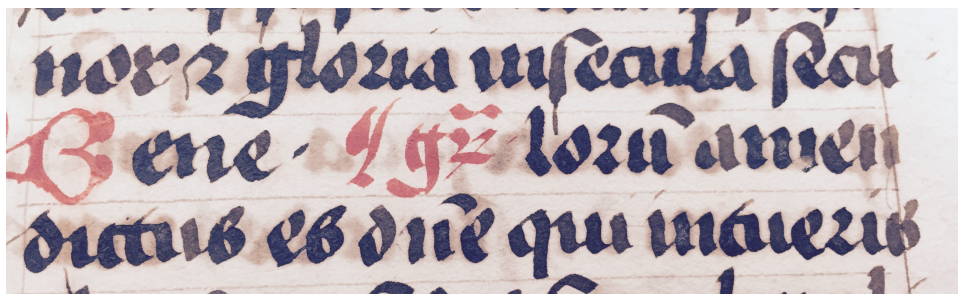 noꝝ ⁊ gloria inſecula ſecu
Bene · ¶ gr̄ lorū amen
dictus es dn̄e qui intueris